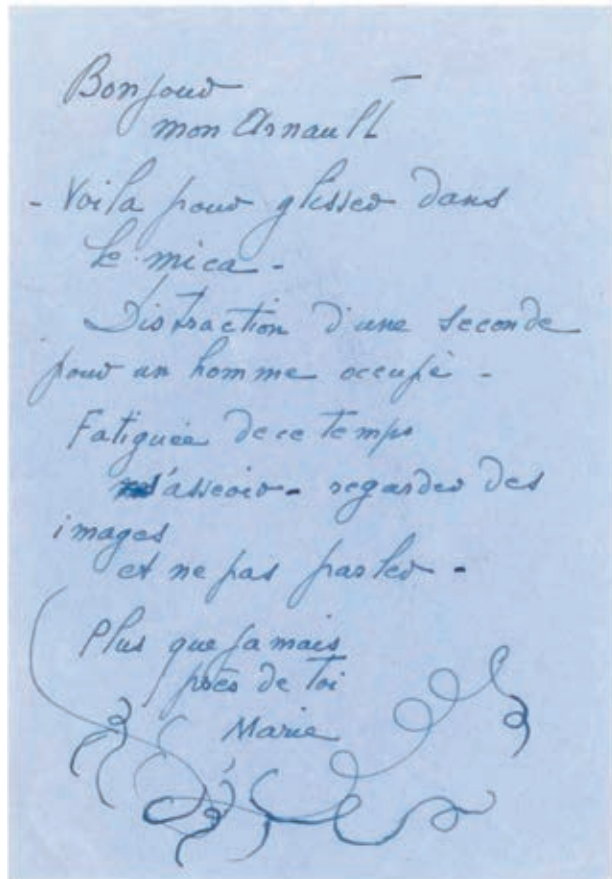 Bonjour
mon Arnault
- Voila pour glisser dans
le mica -
Distraction d'une seconde
pour un homme occupé -
Fatiguée de ce temps
s'asseoir - regarder des
images
et ne pas parler -
Plus que jamais
près de toi
Marie